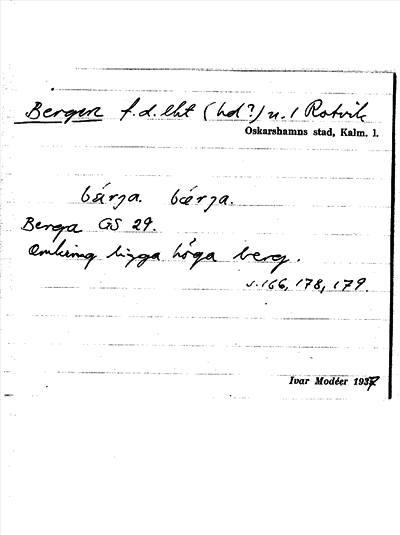 Bergen f.d. lht (hd?) u. / Rotvik
Oskarshamns stad, Kalm. l.
bárja. bǽrja.
Berga GS 29.
Omkring ligga höga berg.
s. 166, 178, 179.
Ivar Modéer 1937